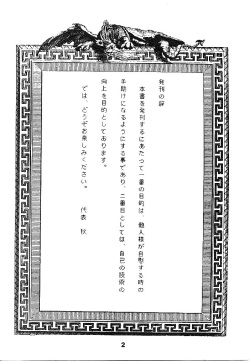 発刊の辞
本書を発刊するにあたって一番の目的は、他人様が自慰する時の
手助けになるようにする事であり、二番目としては、自己の技術の
向上を目的としております。
では、どうぞお楽しみください。
代表
2